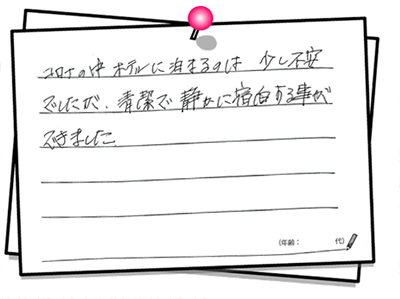 コロナの中 ホテルに泊まるのは 少し不安
でしたが、清潔で 静かに宿泊する事が
できました
(年齢： 代)